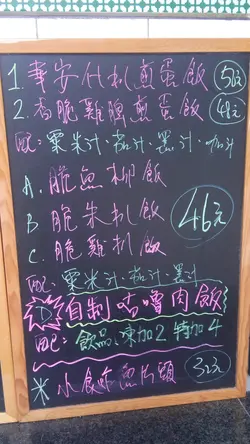 1. 華安什扒煎蛋飯 50元
2. 香脆雞腿煎蛋飯 48元
配:粟米汁·茄汁·黑汁·咖汁
A. 脆魚柳飯
B 脆朱扒飯
C. 脆雞扒飯
46元
配:粟米汁·茄汁·黑汁
D 自制咕嚕肉飯
配:飲品、凍加2 特加4
* 小食 魚片頭 32元